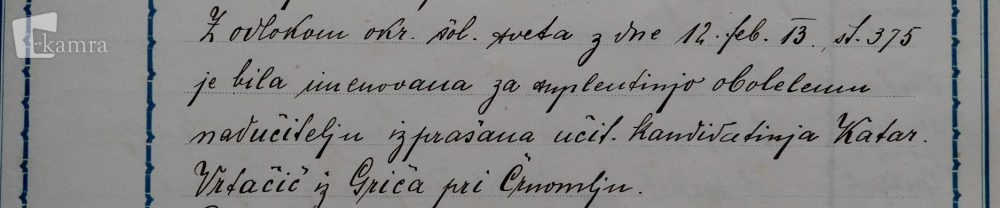 kamra
Z odlokom okr. šol. sveta z dne 12. feb. 13, št. 375
je bila imenovana za suplentinjo obolelemu
nadučitelju izprašana učit. kandidatinja Katar.
Vrtačič iz Griča pri Črnomlju.